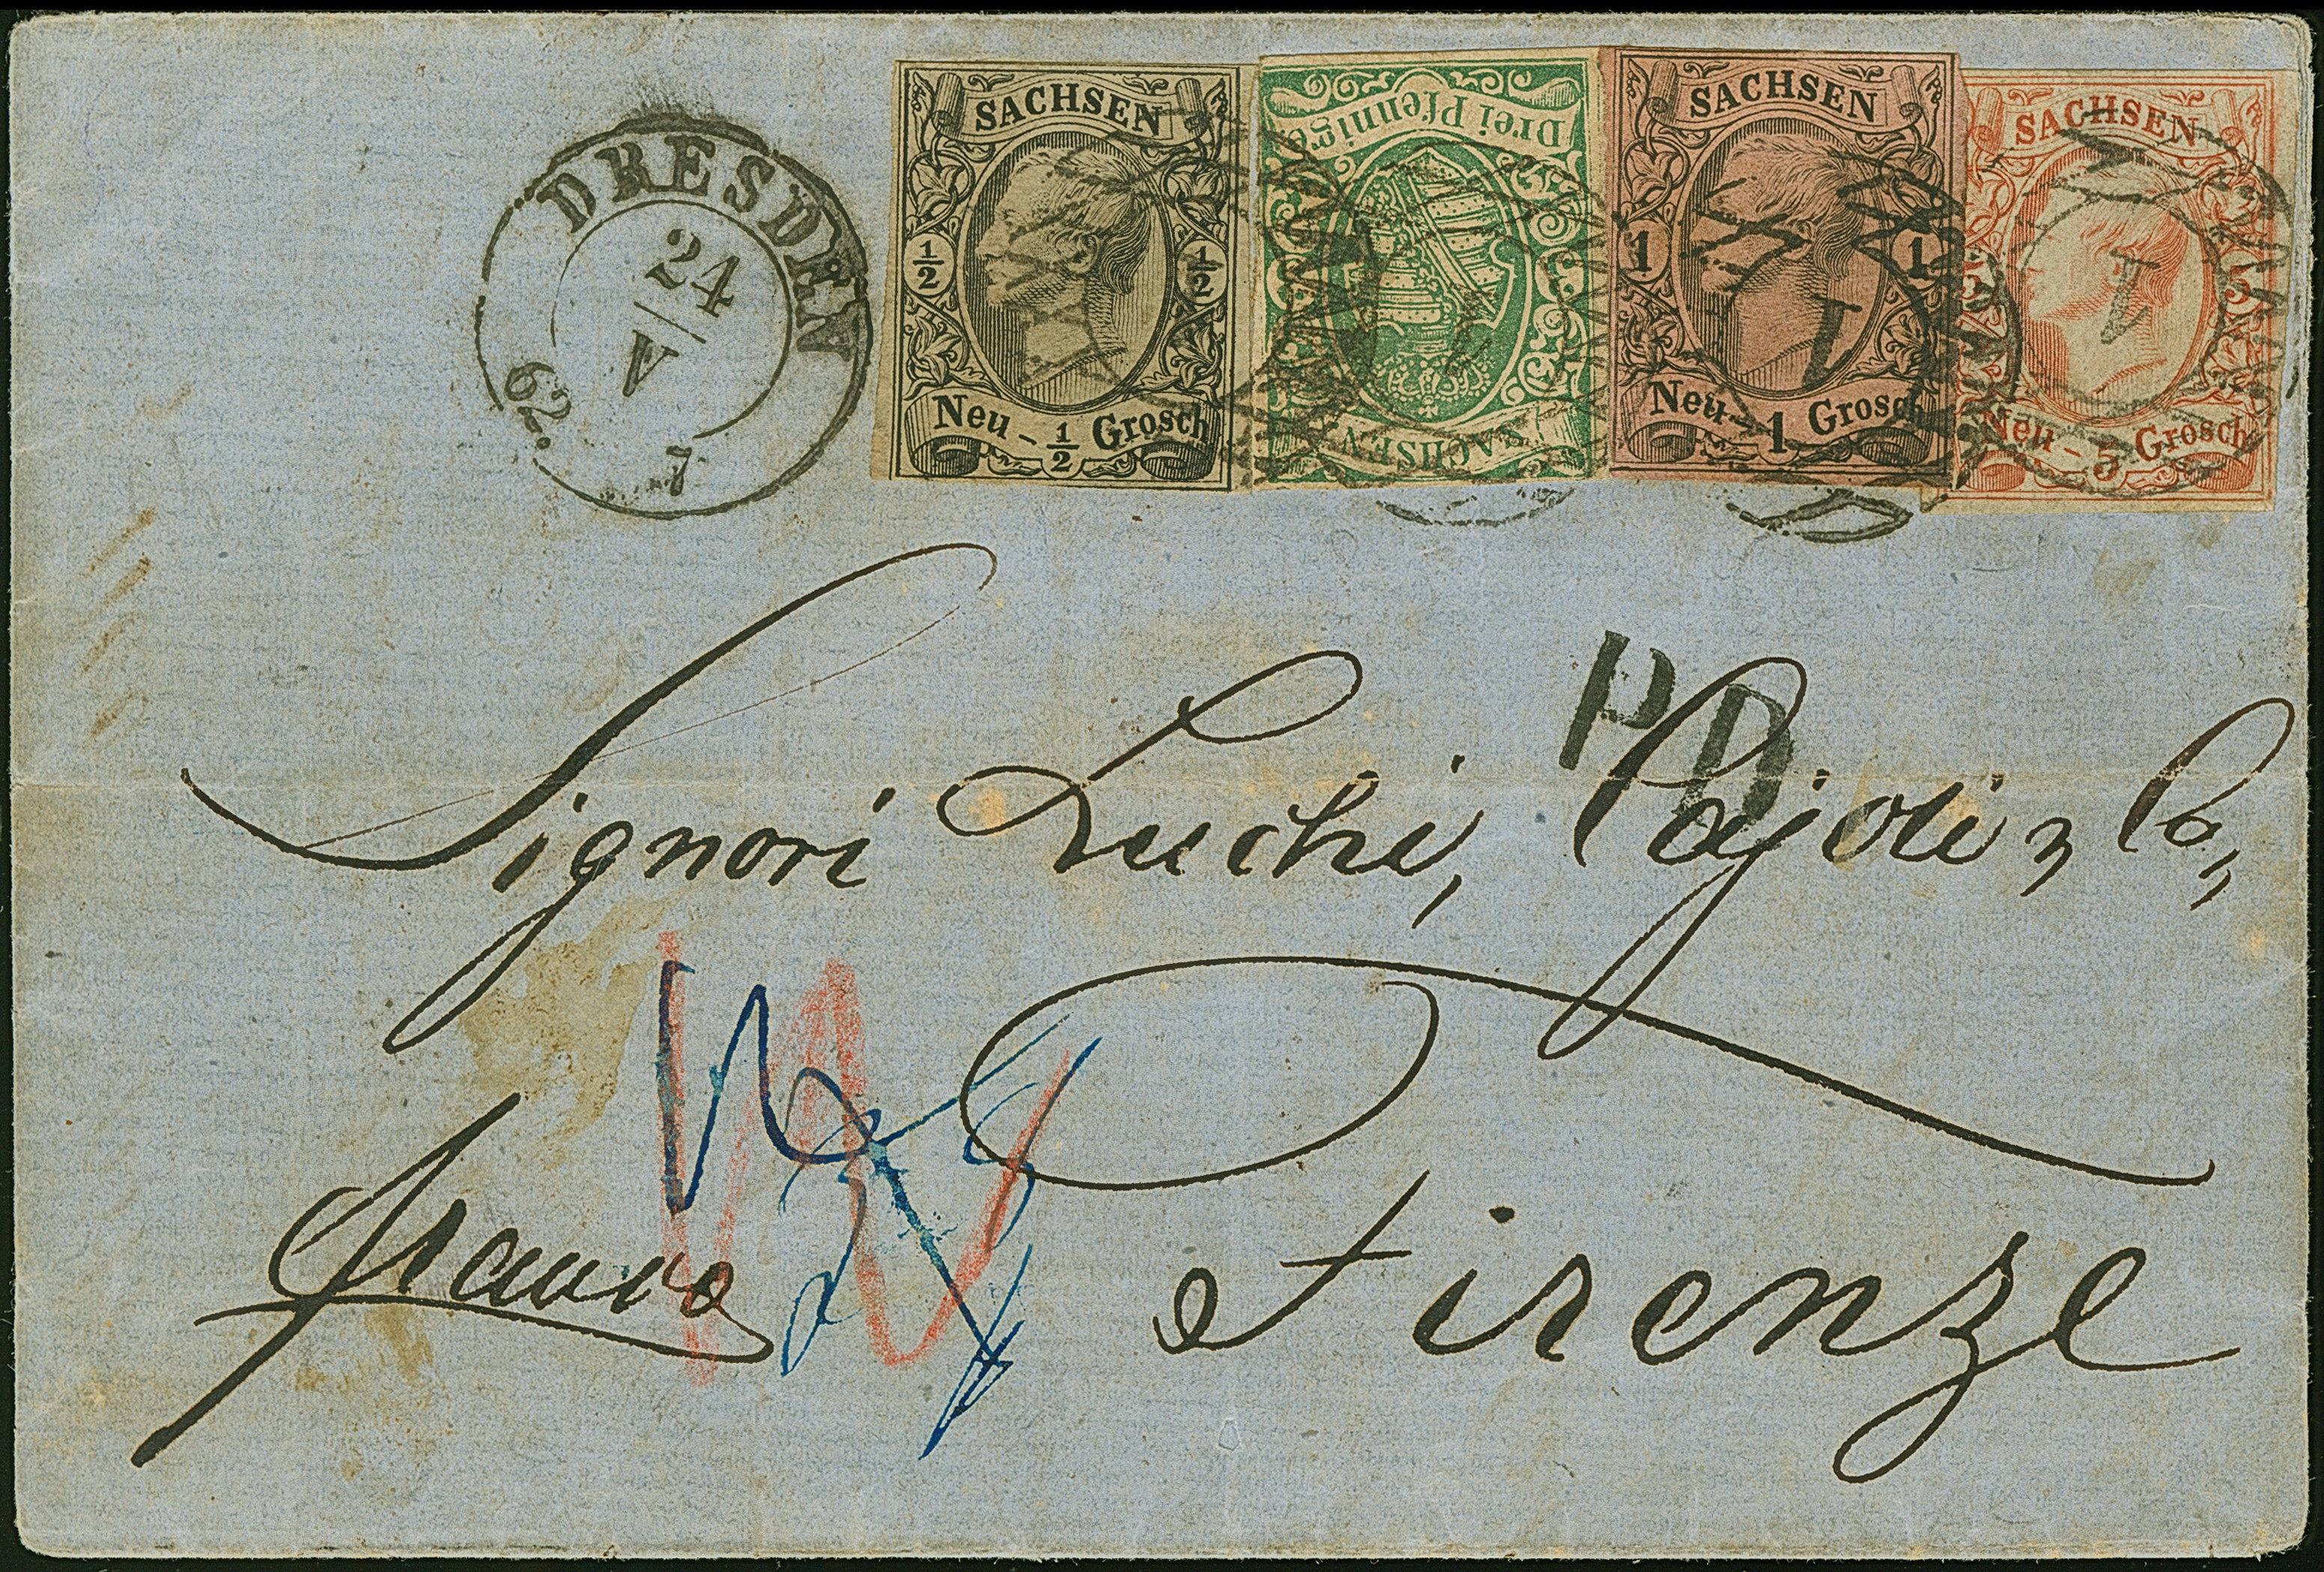 DRESDEN
24
V
62.
7
SACHSEN
½ ½
Neu - ½ Grosch
Drei Pfennige
SACHSEN
SACHSEN
1 1
Neu - 1 Grosch
1
SACHSEN
5 5
Neu - 5 Grosch
1
PD
Signori Luchi, Pajoti & Co,
franco
Firenze